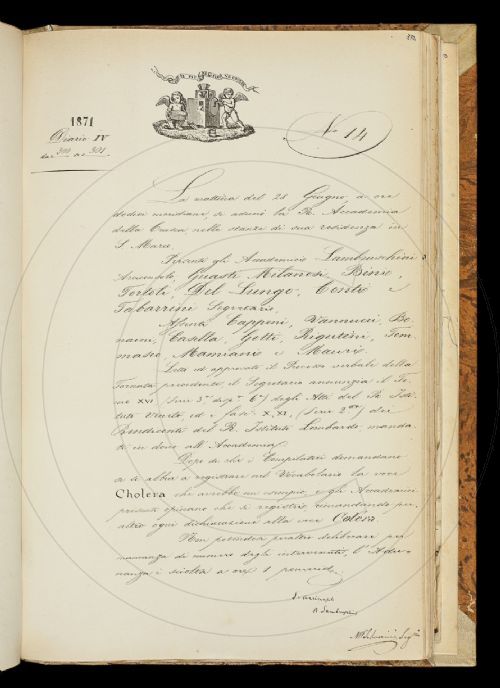 1871
Diario IV
N. 14
La mattina del 28 Giugno, a ore
dodici meridiane, si adunò la R. Accademia
della Crusca nelle stanze di sua residenza in
S. Marco.
Presenti gli Accademici Lambruschini
Arciconsolo, Guasti, Milanesi, Bini,
Tortoli, Del Lungo, Conti e
Tabarrini Segretario.
Assenti Capponi, Vannucci, Bo-
naini, Casella, Gotti, Rigutini, Tom-
maseo, Mamiani e Mauri.
Letto ed approvato il Processo verbale della
Tornata precedente il Segretario annunzia il To-
mo XVI (Serie 3ª disp. 6ª) degli Atti del R. Isti-
tuto Veneto ed i fasc. X, XI, (Serie 2ª) dei
Rendiconti del R. Istituto Lombardo manda-
ti in dono all'Accademia.
Dopo di che i Compilatori domandano
se si abbia a registrare nel Vocabolario la voce
Cholera che avrebbe un esempio, e gli Accademici
presenti opinano che si registri rimandando per-
altro ogni dichiarazione alla voce Colera.
Non potendosi per altro deliberare per
mancanza di numero degli intervenuti, l'Adu-
nanza è sciolta a ore 1 pomerid.
R. Lambruschini
M. Tabarrini Seg.